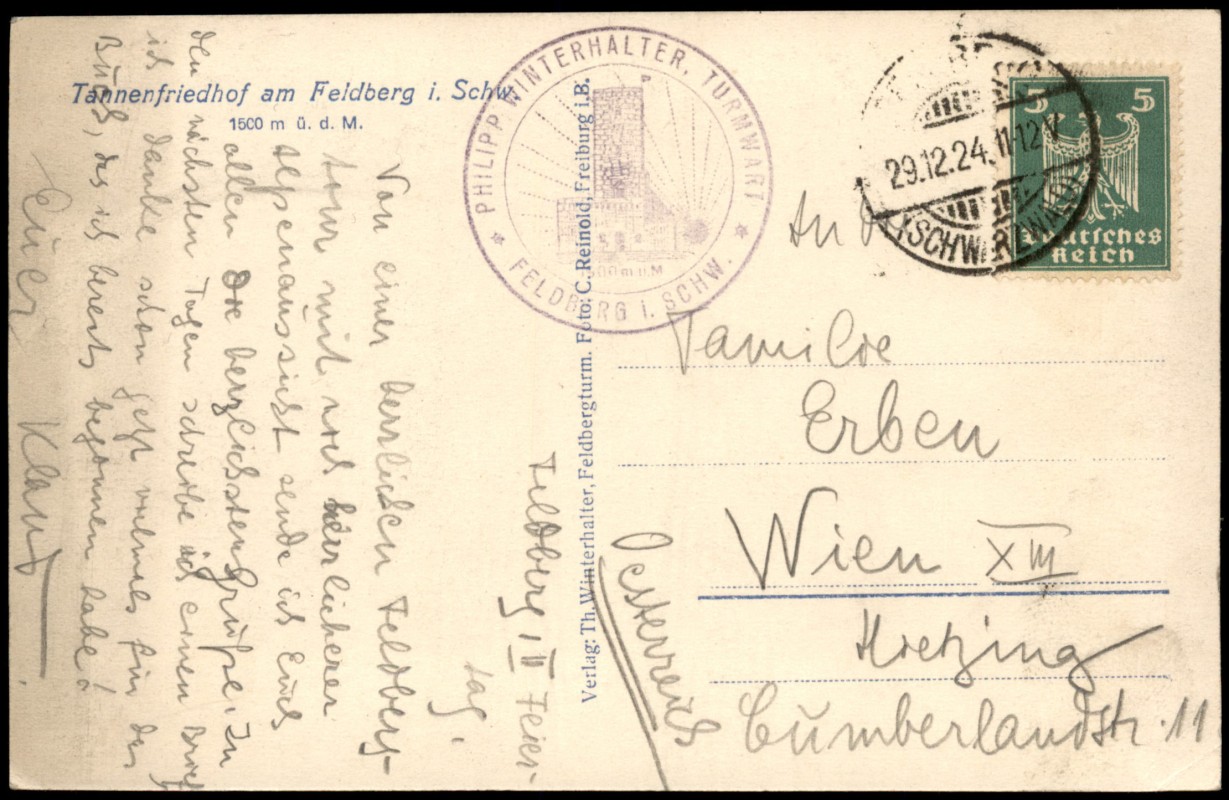 Tannenfriedhof am Feldberg i. Schw.
1500 m ü. d. M.
PHILIPP WINTERHALTER, TURMWART
FELDBERG i. SCHW.
1500 m ü. M
29.12.24. 11-12 V
(SCHWARZWALD)
5 5
Deutsches
Reich
Verlag: Th. Winterhalter, Feldbergturm. Foto: C. Reinold, Freiburg i.B.
Feldberg, II Feier-
tag.
Von einer herrlichen Feldberg-
tour mit noch herrlicherer
Alpenaussicht sende ich Euch
allen die herzlichsten Grüße. In
den nächsten Tagen schreibe ich einen Brief
ich danke schon jetzt vielmals für das
Buch, das ich bereits begonnen habe!
Euer Klaus
An
Familie
Erben
Wien XIII
Hietzing
Cumberlandstr. 11
Oesterreich